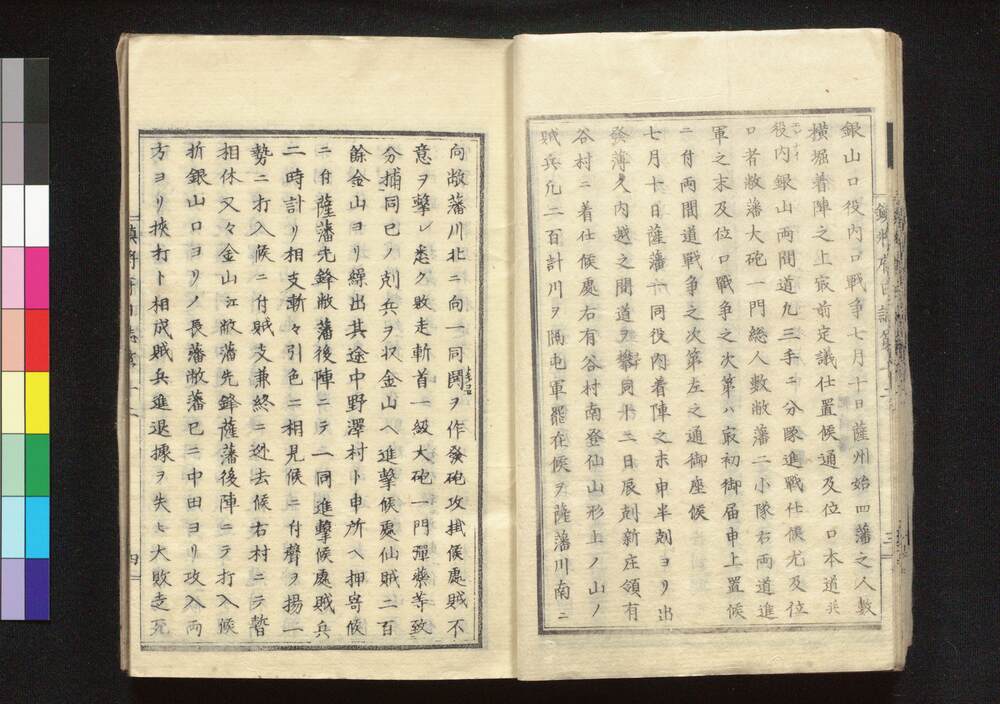 銀山口役内口戦争七月十日薩州始四藩之人数
横堀着陣之上最前定議仕置候通及位口本道并
役内銀山両間道九三手ニ分隊進戦仕候尤及位
口者敝藩大砲一門総人数敝藩二小隊右両道進
軍之末及位口戦争之次第ハ最初御届申上置候
ニ付両間道戦争之次第左之通御座候
七月十日薩藩一同役内着陣之末申半刻ヨリ出
發薄久内越之間道ヲ攀同十二日辰刻新庄領有
谷村ニ着仕候處右有谷村南登仙山形上ノ山ノ
賊兵凡二百計川ヲ隔屯軍罷在候ヲ薩藩川南ニ
三
向敝藩川北ニ向一同鬨ヲ作發砲攻掛候處賊不
意ヲ撃レ悉ク敗走斬首一級大砲一門彈藥等致
分捕同巳ノ剋兵ヲ収金山ヘ進撃候處仙賊二百
餘金山ヨリ繰出其途中野澤村ト申所ヘ押寄候
ニ付薩藩先鋒敝藩後陣ニテ一同進撃候處賊兵
二時計リ相支漸々引色ニ相見候ニ付聲ヲ揚一
勢ニ打入候ニ付賊支兼終ニ迯去候右村ニテ暫
相休又々金山江敝藩先鋒薩藩後陣ニテ打入候
折銀山口ヨリノ長藩敝藩已ニ中田ヨリ攻入両
方ヨリ挾打ト相成賊兵進退據ヲ失ヒ大敗走死
四